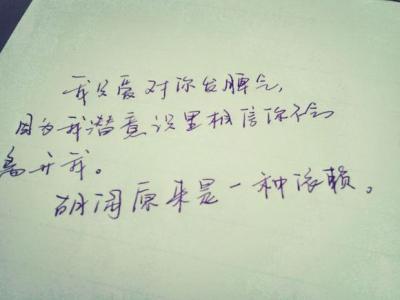 我只爱对你发脾气,
因为我潜意识里相信你不会
离开我。
胡闹原来是一种依赖。